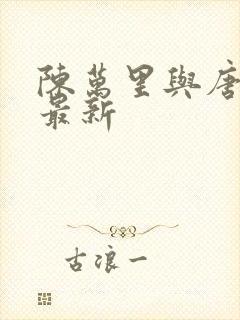 陳萬里與唐
最新
古浪一